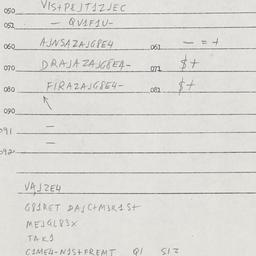 050 VIS+P8JT1ZJEC
051 — QV1F1U-
060 AJNSAZAJG8E4 061 — = +
070 DRAJAZAJG8E4- 071 $+
080 FIRAZAJG8E4- 081 $+
090
091 —
092 —
VAJ2E4
G81RET DAJC+M3R1S+
MEJGL83X
TAK1
C1ME4-N1S+FREMT Q1 S12